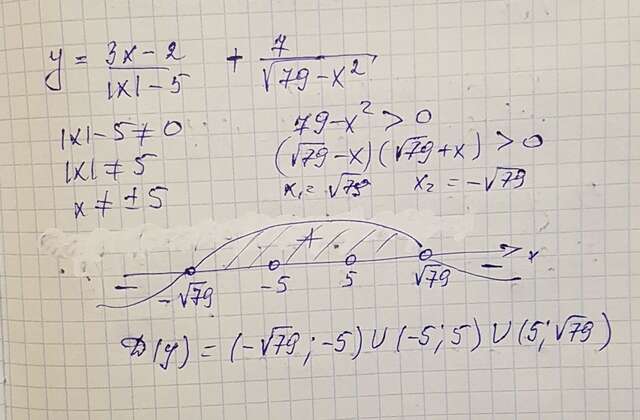 y = (3x-2)/(|x|-5) + 7/√(79-x²)
|x|-5≠0 79-x²>0
|x|≠5 (√79-x)(√79+x)>0
x≠±5 x₁=√79 x₂=-√79
+
- -√79 -5 5 √79 - x
D(y) = (-√79;-5)∪(-5;5)∪(5;√79)